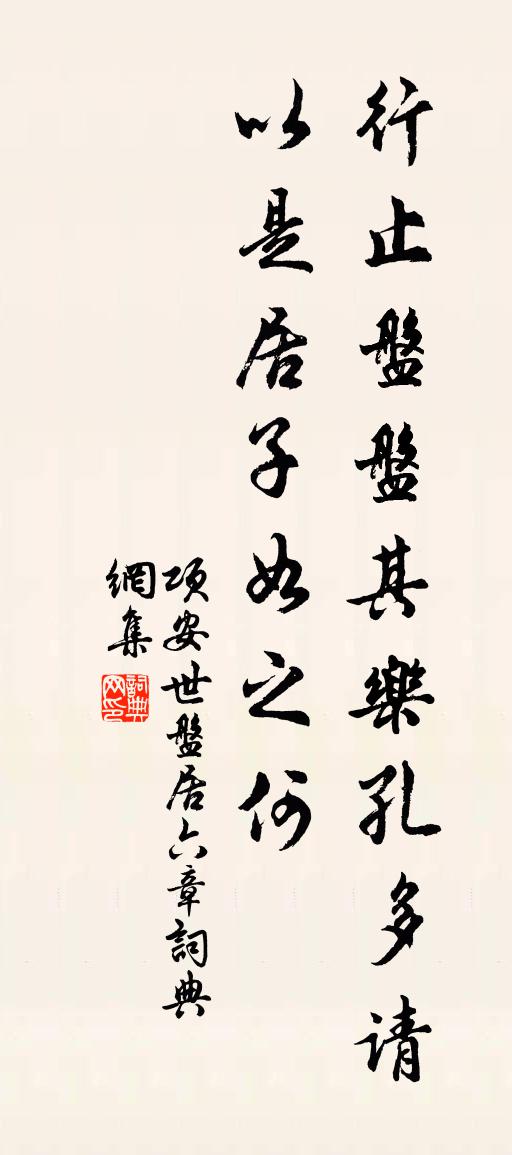 行止盤盤其樂孔多请
以是居子如之何
项安世盤居六章詞典
網集
詞典
网印